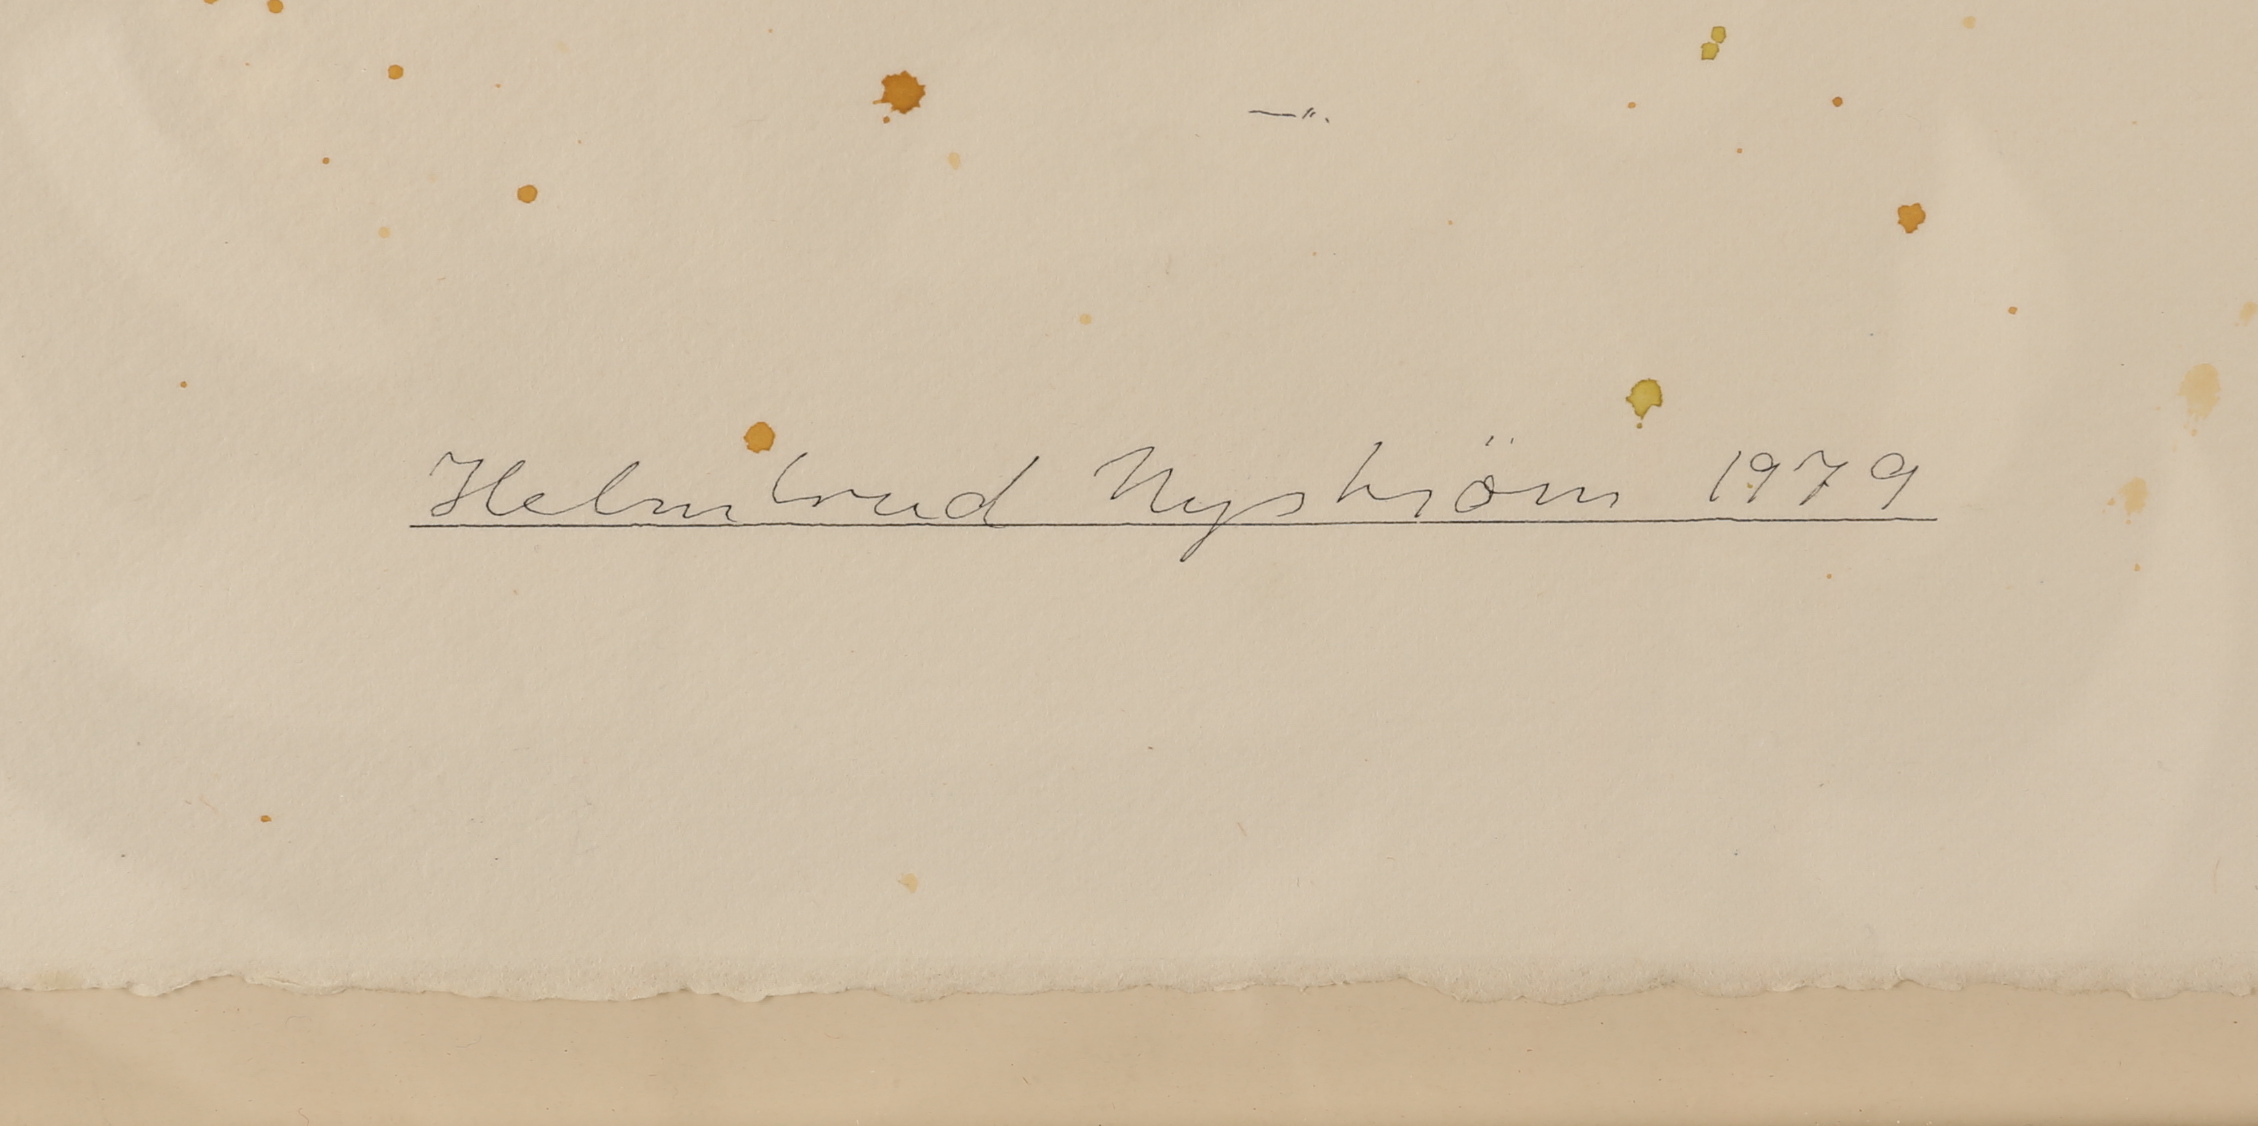 —〃.
Helmtrud Nyström 1979